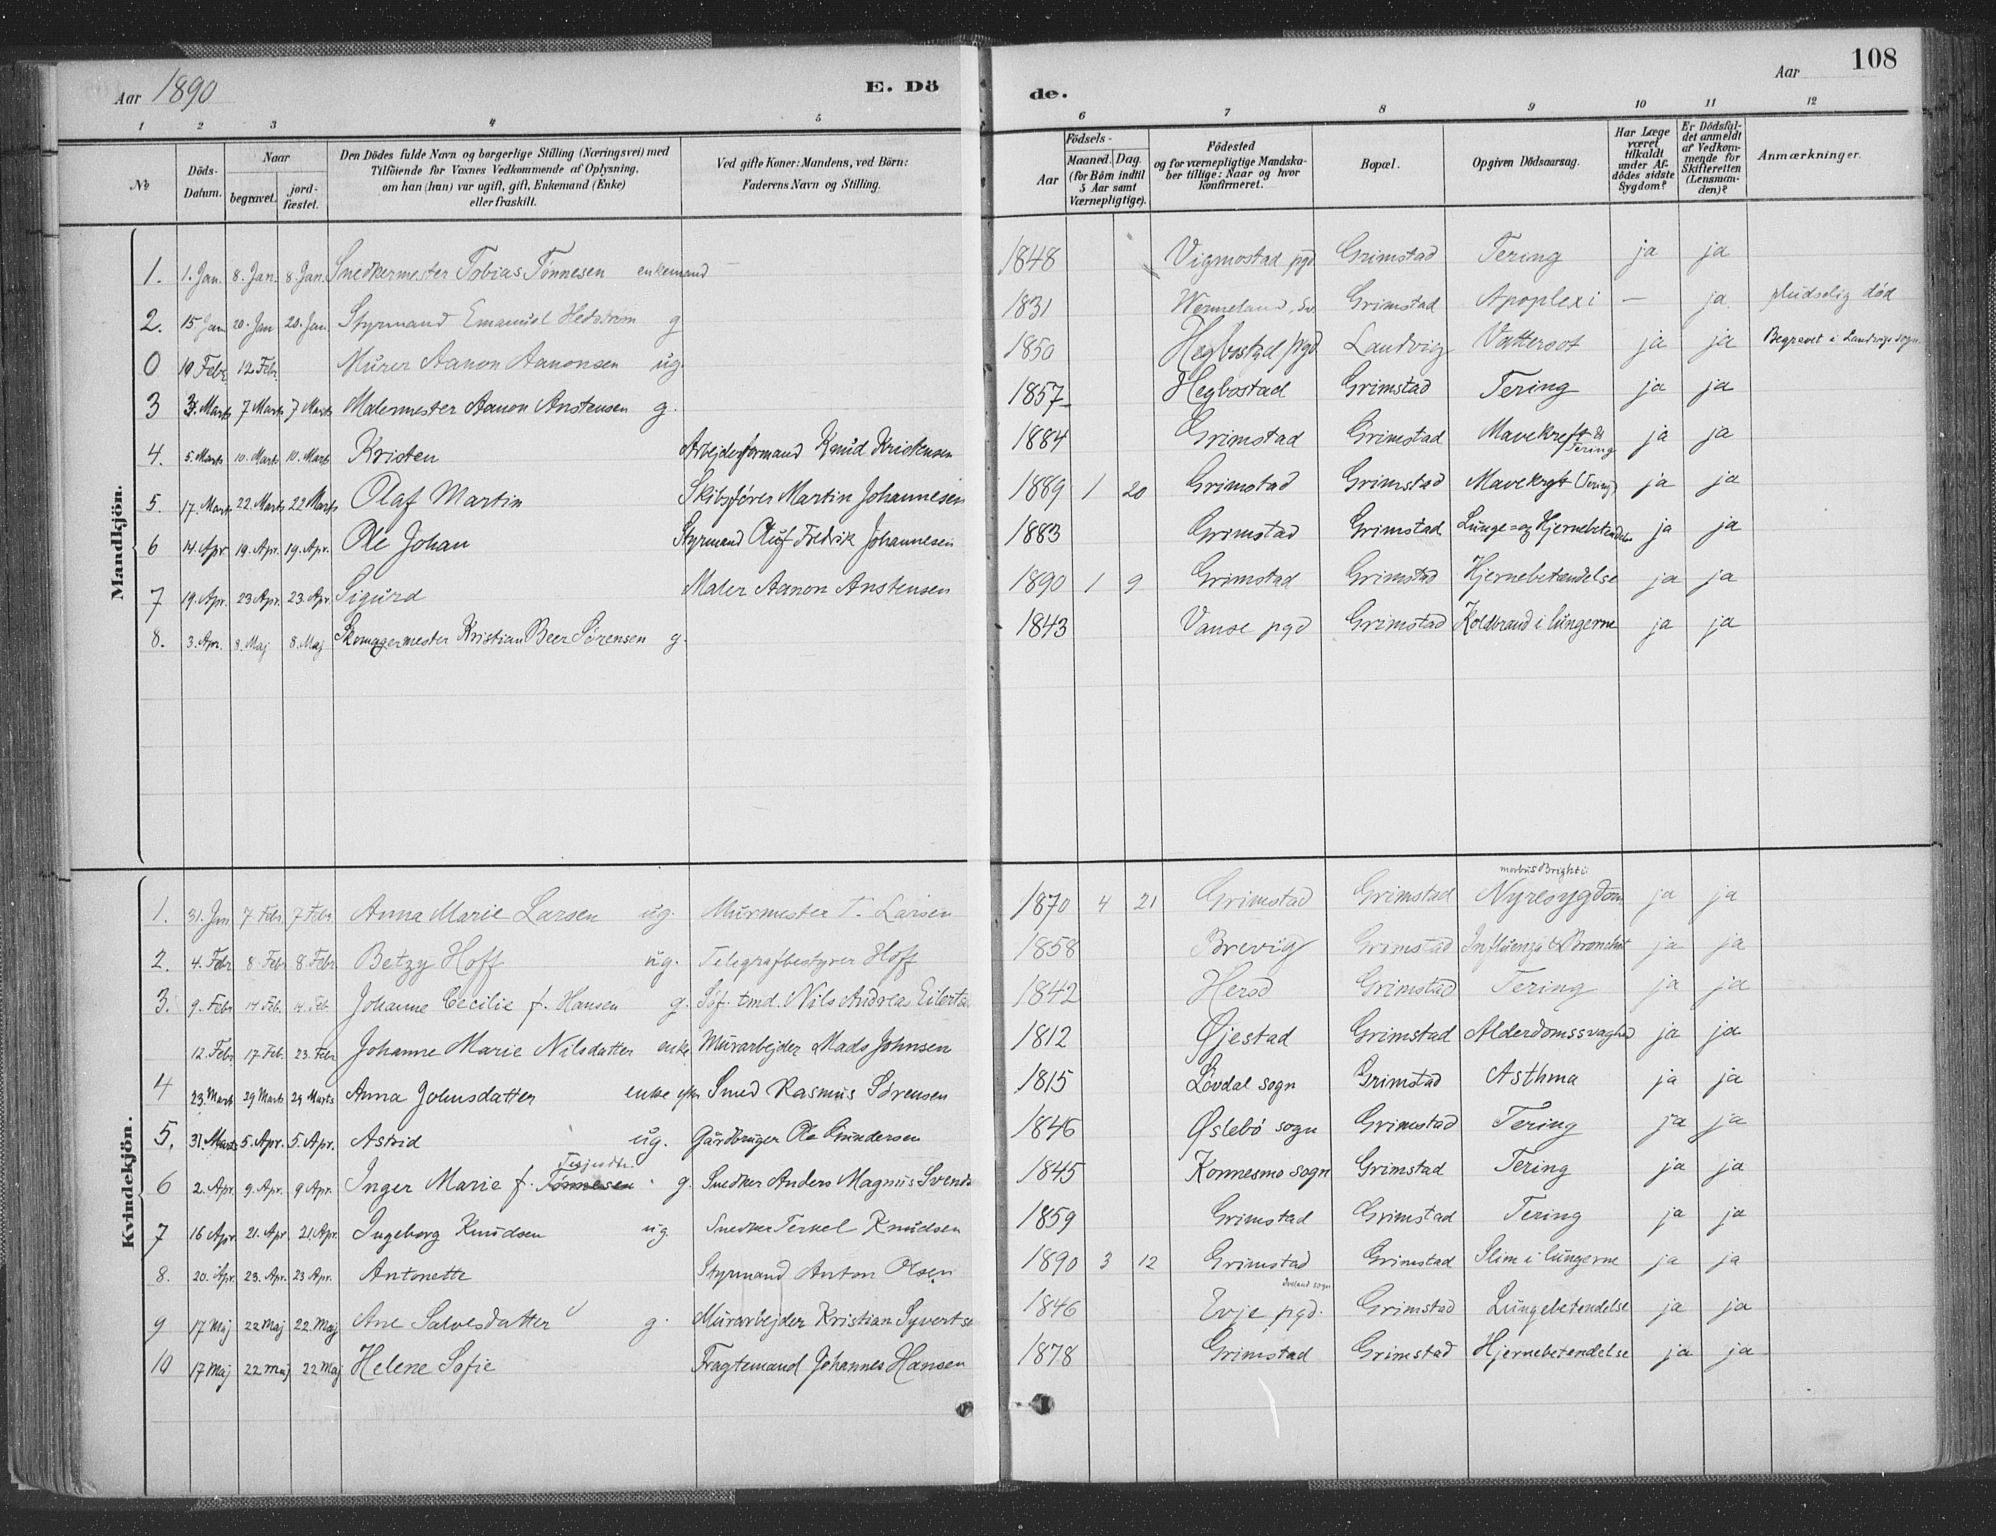 Aar 1890 E. Dö de. Aar 108
1 2 3 4 5 6 7 8 9 10 11 12
No
Döds-Datum.
Naar
begravet.
jord-fæstet.
Den Dödes fulde Navn og borgerlige Stilling (Næringsvei) med
Tilföiende for Voxnes Vedkommende af Oplysning,
om han (hun) var ugift, gift, Enkemand (Enke)
eller fraskilt.
Ved gifte Koner: Mandens, ved Börn:
Faderens Navn og Stilling.
Födsels-
Aar
Maaned. Dag.
(for Börn indtil
5 Aar samt
Værnepligtige).
Födested
og for værnepligtige Mandska-
ber tillige: Naar og hvor
konfirmeret.
Bopæl.
Opgiven Dödsaarsag.
Har Læge
været
tilkaldt
under Af-
dödes sidste
Sygdom?
Er Dödsfal-
det anmeldt
af Vedkom-
mende for
Skifteretten
(Lensman-
den)?
Anmærkninger.
Mandkjön.
1. 1. Jan. 8. Jan. 8. Jan. Snedkermester Tobias Tönnesen enkemand 1848 Vigmostad pgd Grimstad Tering ja ja
2. 15 Jan 20. Jan 20. Jan Styrmand Emanuel Hedström g 1831 Wermeland, Sv. Grimstad Apoplexi — ja pludselig död
0 10 Febr 12 Febr Murer Aanon Aanonsen ug. 1850 Hegbostad pgd Landvig Vattersot ja ja Begravet i Landvigs sogn
3 3. Marts 7 Marts 7 Marts Malermester Aanon Anstensen g. 1857 Hegbostad Grimstad Tering ja ja
4. 5. Marts 10. Marts 10. Marts Kristen Arbejdsformand Knud Kristensen 1884 Grimstad Grimstad Mavekreft & Tering ja ja
5. 17. Marts 22. Marts 22 Marts Olaf Martin Skibsförer Martin Johannesen 1889 1 20 Grimstad Grimstad Mavekrgt (Tering) ja ja
6 14. Apr 19. Apr. 19. Apr. Ole Johan Styrmand Oluf Fredrik Johannesen 1883 Grimstad Grimstad Lunge= og Hjernebetendelse ja ja
7 19. Apr. 23 Apr. 23. Apr. Sigurd Maler Aanon Anstensen 1890 1 9 Grimstad Grimstad Hjernebetændelse ja ja
8. 3. Apr. 8. Maj 8. Maj Skomagermester Kristian Beer Sörensen g. 1843 Vanse pgd Grimstad Koldbrand i lungerne ja ja
Kvindekjön.
1. 31. Jan 7 Febr. 7 Febr Anna Marie Larsen ug. Murmester T. Larsen 1870 4 21 Grimstad Grimstad morbus Brighti Nyresygdom ja ja
2. 4. Febr 8. Febr 8. Febr Betzy Hoff ug. Telegrafbestyrer Hoff 1858 Brevig Grimstad Influenza & Bronchit ja ja
3. 9. Febr 14 Feb. 14. Feb. Johanne Cecilie f. Hansen g. Söf. tmd. Nils Andreas Eilertse 1842 Herö Grimstad Tering ja ja
12. Febr 17. Feb. 23. Febr Johanne Marie Nilsdatter enke Murarbejder Mads Johnsen 1812 Øjestad Grimstad Alderdomssvaghed ja ja
4 23. Marts 29 Marts 29 Marts Anna Johnsdatter enke efter Smed Rasmus Sörensen 1815 Lövdal sogn Grimstad Asthma ja ja
5. 31. Marts 5. Apr. 5. Apr. Astrid ug. Gårdbruger Ole Gundersen 1846 Øslebö sogn Grimstad Tering ja ja
6 2. Apr. 9. Apr. 9 Apr. Inger Marie f. Tönnesen Terjesdtr. g. Snedker Anders Magnus Svends 1845 Konnesmo sogn Grimstad Tering ja ja
7 16 Apr 21. Apr 21. Apr. Ingeborg Knudsen ug. Snedker Terkel Knudsen 1859 Grimstad Grimstad Tering ja ja
8. 20. Apr. 23. Apr. 23 Apr. Antonette Styrmand Anton Olsen 1890 3 12 Grimstad Grimstad Slim i lungerne ja ja
9 17 Maj 22 Maj 22. Maj Ane Salvesdatter g. Murarbejder Kristian Syvertse 1846 Iveland sogn Evje pgd. Grimstad Lungebetendelse ja ja
10 17 Maj 22 Maj 22 Maj Helene Sofie Fragtemand Johannes Hansen 1878 Grimstad Grimstad Hjernebetendelse ja ja